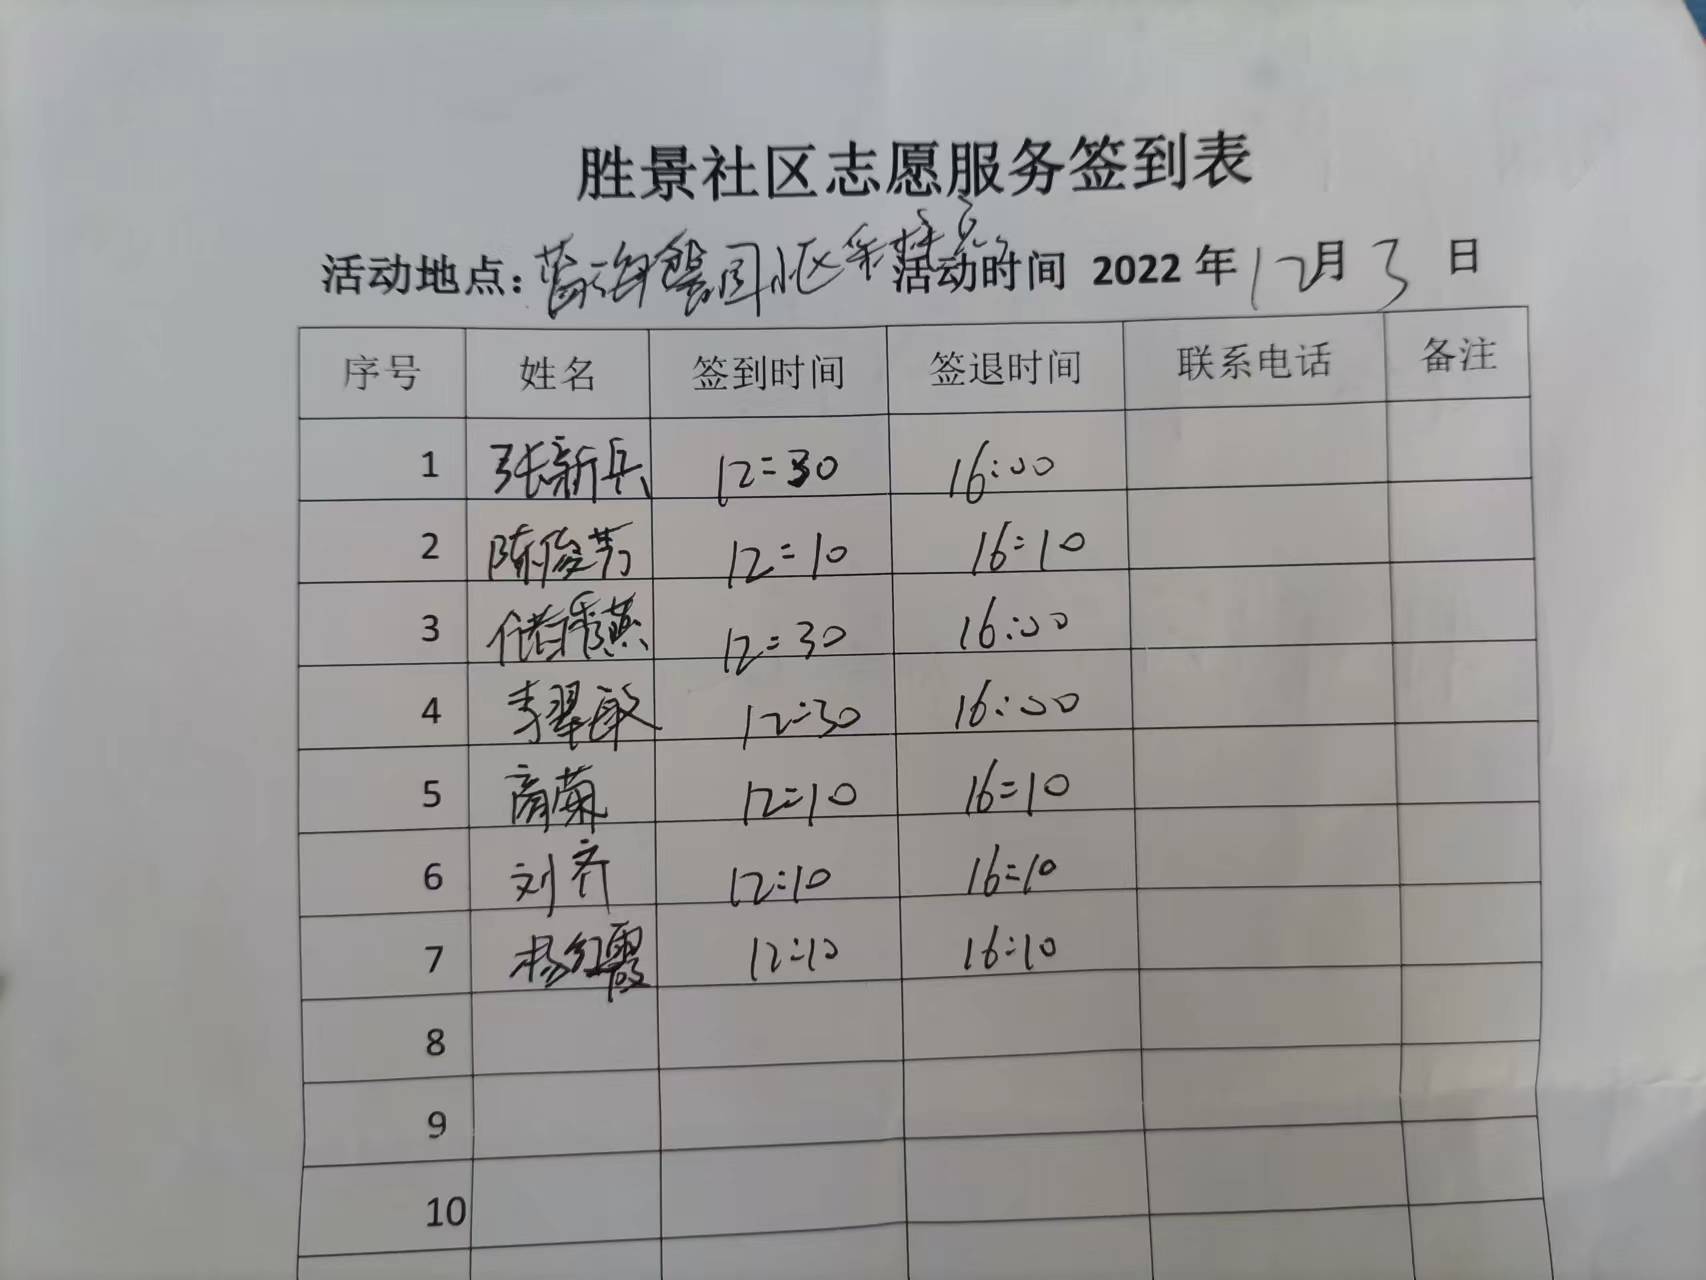 胜景社区志愿服务签到表
活动地点：蓝海馨园小区采样点 活动时间 2022 年 12 月 3 日
序号 姓名 签到时间 签退时间 联系电话 备注
1 张新兵 12:30 16:00
2 陈俊芳 12:10 16:10
3 储秀燕 12:30 16:00
4 李翠敏 12:30 16:00
5 高菊 12:10 16:10
6 刘齐 12:10 16:10
7 杨红霞 12:10 16:10
8
9
10